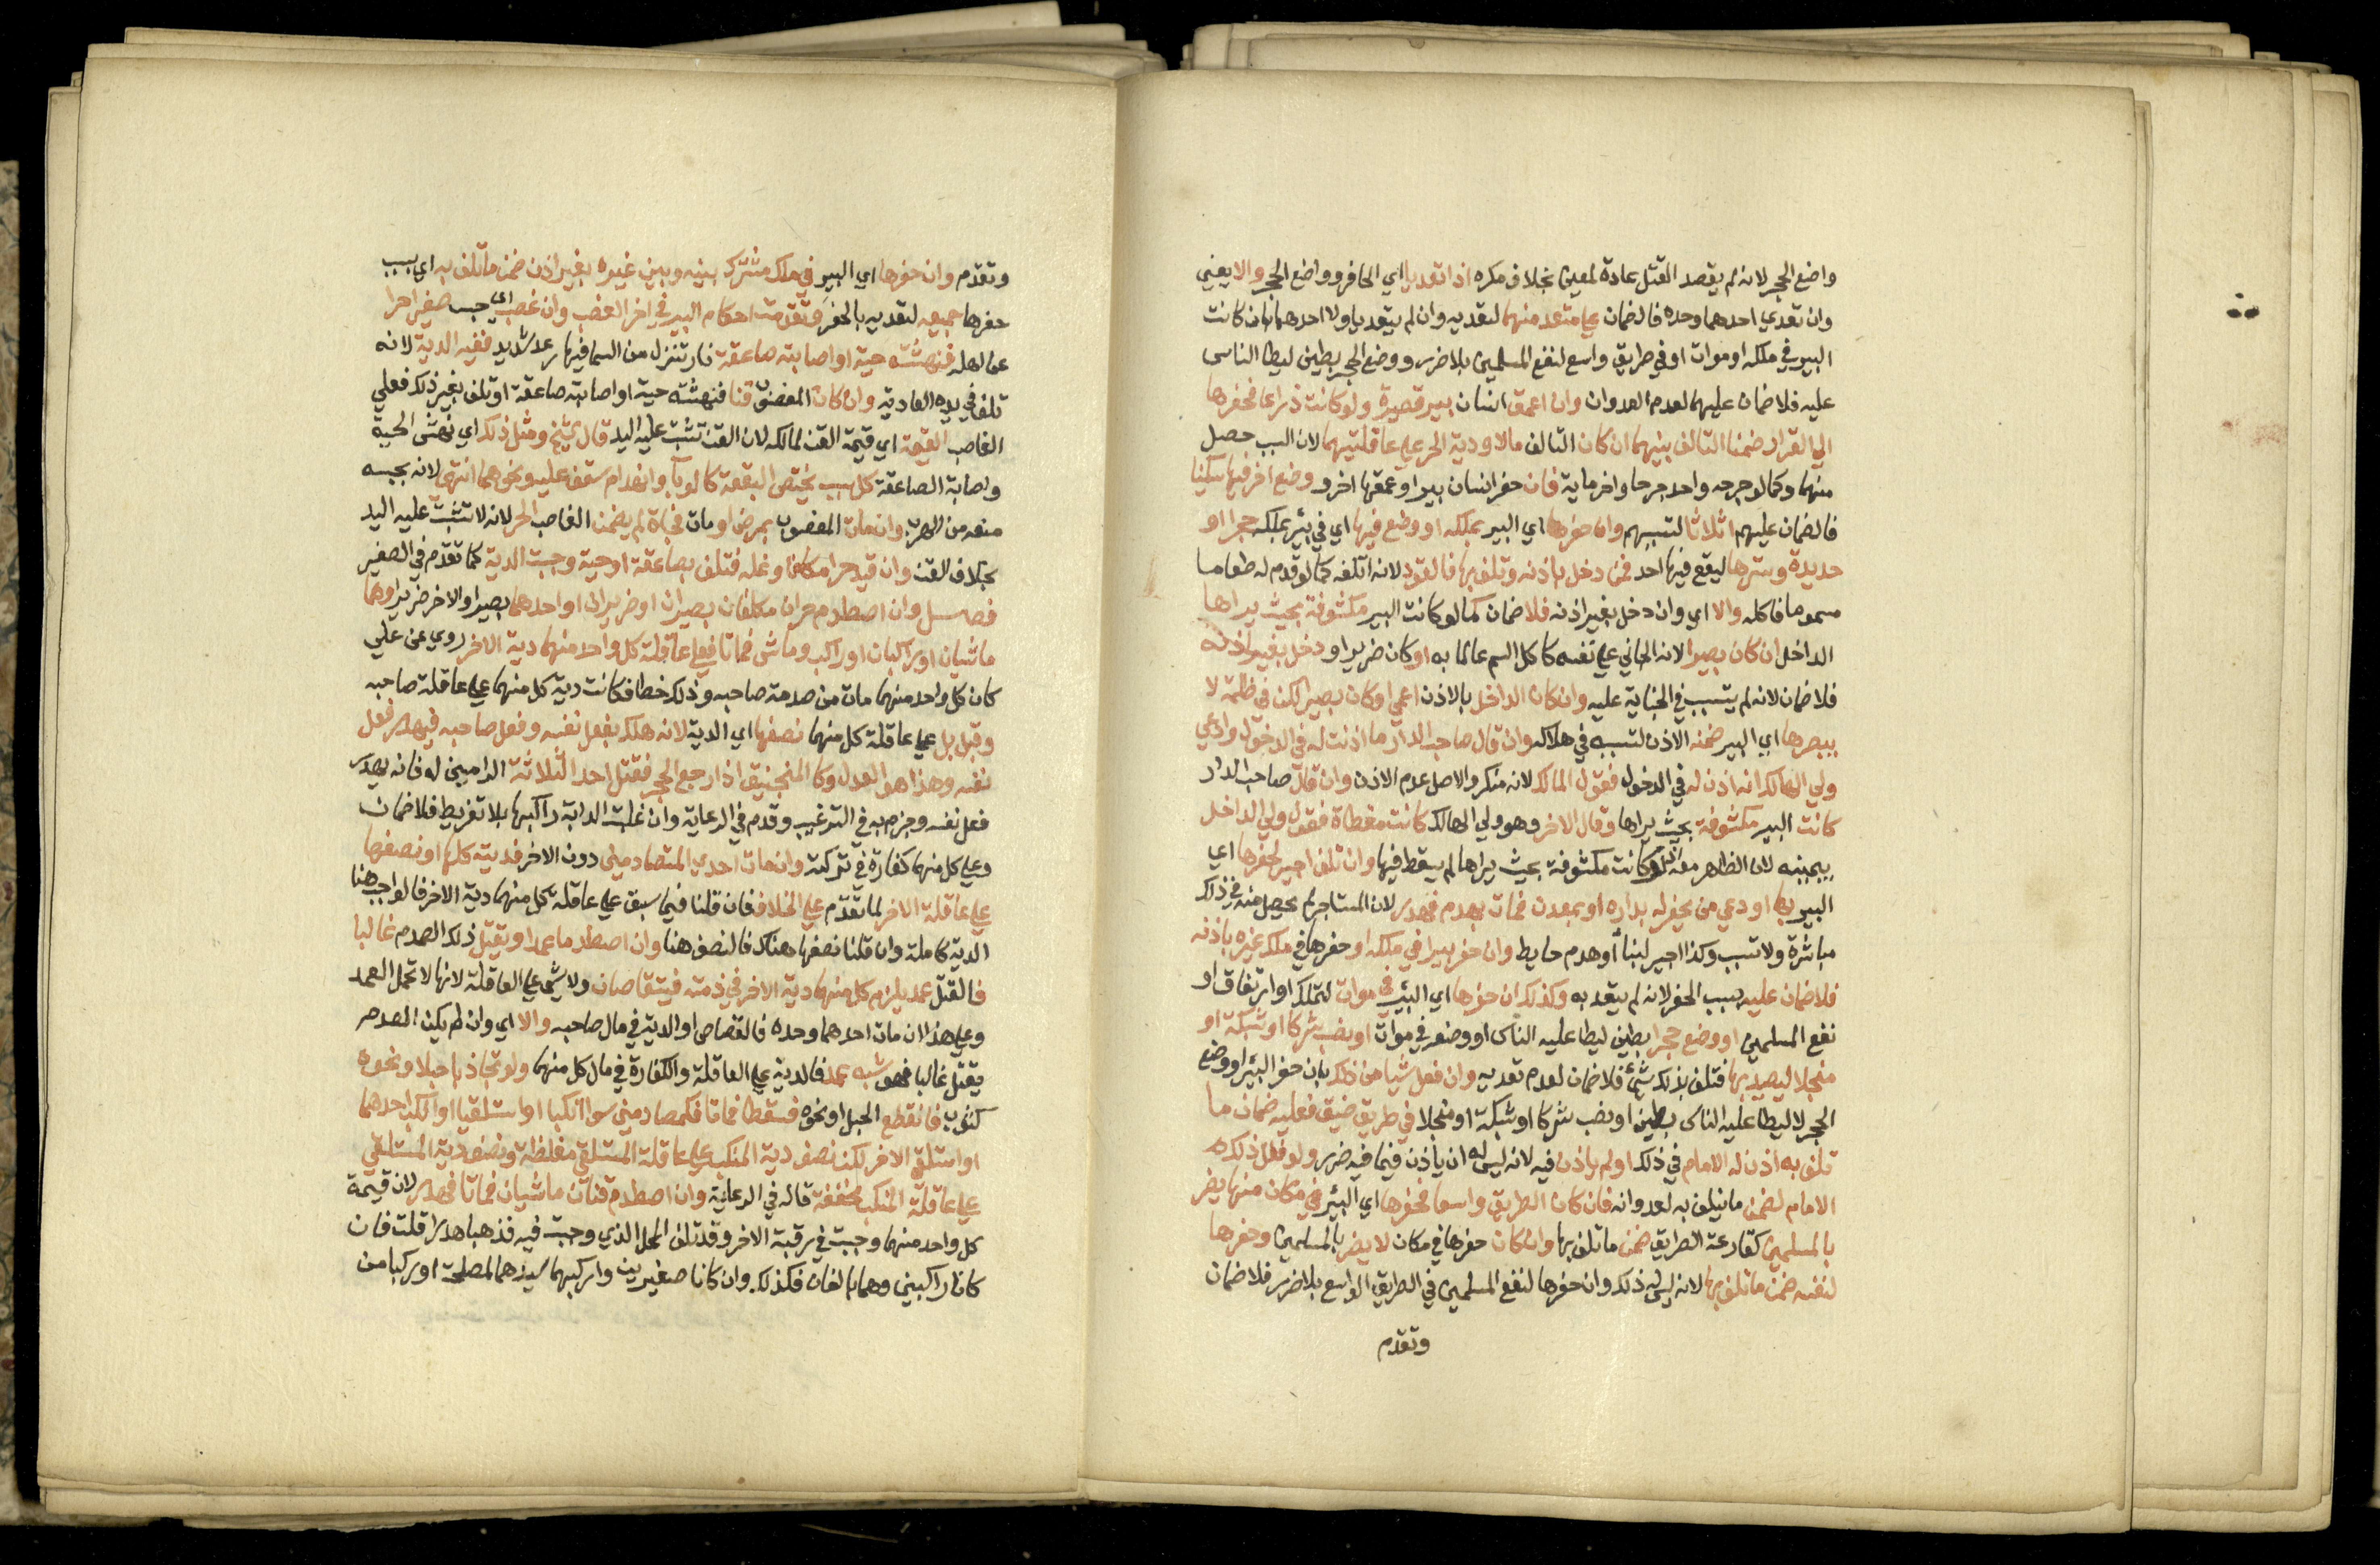 واضع الحجر لانه لم يقصد القتل عادة لمعين بخلاف مكره اذا تعديا اي الحافر وواضع الحجر والا يعني
وان تعدي احدهما وحده فالضمان علي متعد منهما لتعديه وان لم يتعديا ولا احدهما بان كانت
البير في ملكه او موات او في طريق واسع لنفع المسلمين بلا ضرر ووضع الحجر بطين ليطا الناس
عليه فلا ضمان عليهما لعدم العدوان وان اعمق انسان بير قصيرة ولو كانت ذراعا فحفرها
الي القرار ضمنا التالف بينهما ان كان التالف مالا ودية الحر علي عاقلتيهما لان السبب حصل
منهما وكما لو جرحه واحد جرحا واخر ماية فان حفر انسان بيرا وعمقها اخر ووضع اخر فيها سكينا
فالضمان عليهم اثلاثا لتسببهم وان حفرها اي البير بملكه او وضع فيها اي في بئر بملكه حجرا او
حديدة وسترها ليقع فيها احد فمن دخل باذنه وتلف بها فالقود لانه اتلفه كما لو قدم له طعاما
مسموما فاكله والا اي وان دخل بغير اذنه فلا ضمان كما لو كانت البير مكشوفة بحيث يراها
الداخل ان كان بصيرا لانه الجاني علي نفسه كاكل السم عالما به او كان ضريرا ودخل بغير اذنه
فلا ضمان لانه لم يتسبب في الجناية عليه وان كان الداخل بالاذن اعمي او كان بصيرا لكن في ظلمة لا
يبصرها اي البير ضمنه الاذن لتسببه في هلاكه وان قال صاحب الدار ما اذنت له في الدخول وادعي
ولي الهالك انه اذن له في الدخول فقول المالك لانه منكر والاصل عدم الاذن وان قال صاحب الدار
كانت البير مكشوفة بحيث يراها وقال الاخر وهو ولي الهالك كانت مغطاة فقول ولي الداخل
بيمينه لان الظاهر معه اذ لو كانت مكشوفة بحيث يراها لم يسقط فيها وان تلف اجير لحفرها اي
البير بها او دعي من يحفر له بداره او بمعدن فمات بهدم فهدر لان المستاجر لم يحصل منه في ذلك
مباشرة ولا تسبب وكذا اجير لبناء او هدم حايط وان حفر بيرا في ملكه او حفرها في ملك غيره باذنه
فلا ضمان عليه بسبب الحفر لانه لم يتعد به وكذلك ان حفرها اي البئر في موات لتملك او ارتفاق او
نفع المسلمين او وضع حجرا بطين ليطا عليه الناس او وضعه في موات او نصب شركا او شبكة او
منجلا ليصيد بها فتلف بذلك شيء فلا ضمان لعدم تعديه وان فعل شيا من ذلك بان حفر البئر او وضع
الحجر لا ليطا عليه الناس بطين او نصب شركا او شبكة او منجلا في طريق ضيق فعليه ضمان ما
تلف به اذن له الامام في ذلك او لم ياذن فيه لانه ليس له ان ياذن فيما فيه ضرر ولو فعل ذلك
الامام لضمن ما يتلف به لعدوانه فان كان الطريق واسعا فحفرها اي البئر في مكان منها يضر
بالمسلمين كقارعة الطريق ضمن ما تلف بها وان كان حفرها في مكان لا يضر بالمسلمين وحفرها
لنفسه ضمن ما تلف بها لانه ليس له ذلك وان حفرها لنفع المسلمين في الطريق الواسع بلا ضرر فلا ضمان
وتقدم
وتقدم وان حفرها اي البير في ملك مشترك بينه وبين غيره بغير اذن ضمن ما تلف به اي بسبب
حفرها جميعه لتعديه بالحفر وتقدمت احكام البير في اخر الغصب وان غصب اي حبس صغيرا حرا
عن اهله فنهشته حية او اصابته صاعقة نار تنزل من السما فيها رعد شديد ففيه الدية لانه
تلف في يده العادية وان كان المغصوب قنا فنهشته حية او اصابته صاعقة او تلف بغير ذلك فعلي
الغاصب القيمة اي قيمة القن لمالكه لان القن تثبت عليه اليد قال الشيخ ومثل ذلك اي نهش الحية
واصابة الصاعقة كل سبب يختص البقعة كالوباء وانهدام سقف عليه ونحوهما انتهي لانه بحبسه
منعه من الهرب وان مات المغصوب بمرض او مات فجاة لم يضمن الغاصب الحر لانه لا تثبت عليه اليد
بخلاف القن وان قيد حرا مكلفا وغله فتلف بصاعقة او حية وجبت الدية كما تقدم في الصغير
فصل وان اصطدم حران مكلفان بصيران او ضريران او احدهما بصيرا والاخر ضريرا وهما
ماشيان او راكبان او راكب وماش فماتا فعلي عاقلة كل واحد منهما دية الاخر روي عن علي
كان كل واحد منهما مات من صدمة صاحبه وذلك خطا فكانت دية كل منهما علي عاقلة صاحبه
وقيل بل علي عاقلة كل منهما نصفها اي الدية لانه هلك بفعل نفسه وفعل صاحبه فيهدر فعل
نفسه وهذا هو العدل وكالمنجنيق اذا رجع الحجر فقتل احد الثلاثة الرامين له فانه يهدر
فعل نفسه وجزم به في الترغيب وقدم في الرعاية وان غلبت الدابة راكبها بلا تفريط فلا ضمان
وعلي كل منهما كفارة في تركته وان مات احدي المتصادمين دون الاخر فديته كلها او نصفها
علي عاقلة الاخر لما تقدم علي الخلاف فان قلنا فيما سبق علي عاقلة كل منهما دية الاخر فالواجب هنا
الدية كاملة وان قلنا نصفها هناك فالنصف هنا وان اصطدما عمدا ويقتل ذلك الصدم غالبا
فالقتل عمد يلزم كل منهما دية الاخر في ذمته فيتقاصان ولا شي علي العاقلة لانها لا تحمل العمد
وعلي هذا ان مات احدهما وحده فالقصاص او الدية في مال صاحبه والا اي وان لم يكن الصدم
يقتل غالبا فهو شبه عمد فالدية علي العاقلة والكفارة في مال كل منهما ولو تجاذبا حبلا ونحوه
كثوب فانقطع الحبل او نحوه فسقطا فماتا فكمصادمين سوا انكبا او استلقيا او انكب احدهما
او استلقي الاخر لكن نصف دية المنكب علي عاقلة المستلقي مغلظة ونصف دية المستلقي
علي عاقلة المنكب مخففة قاله في الرعاية وان اصطدم قنان ماشيان فماتا فهدر لان قيمة
كل واحد منهما وجبت في رقبة الاخر وقد تلف المحل الذي وجبت فيه فذهبا هدرا قلت فان
كانا راكبين وهما بالغان فكذلك وان كانا صغيرين واركبهما سيدهما لمصلحة او ركبا من